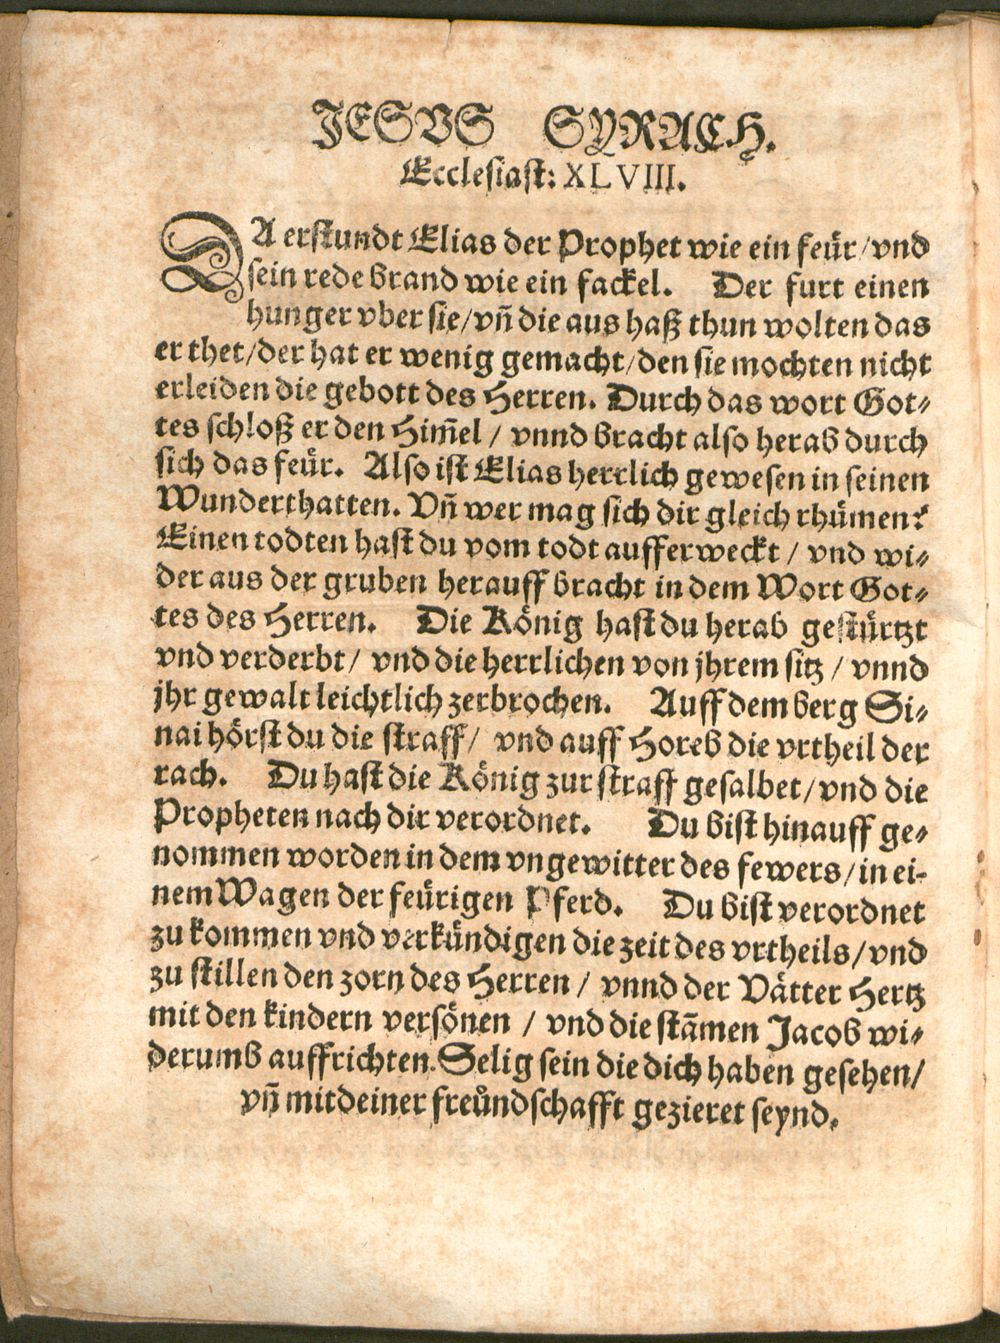 JESVS SYRACH.
Ecclesiast: XLVIII.
DA erstundt Elias der Prophet wie ein feür/vnd
sein rede brand wie ein fackel. Der furt einen
hunger vber sie/vñ die aus haß thun wolten das
er thet/der hat er wenig gemacht/den sie mochten nicht
erleiden die gebott des Herren. Durch das wort Got⸗
tes schloß er den Him̃el / vnnd bracht also herab durch
sich das feür. Also ist Elias herrlich gewesen in seinen
Wunderthatten. Vñ wer mag sich dir gleich rhümen?
Einen todten hast du vom todt aufferweckt / vnd wi⸗
der aus der gruben herauff bracht in dem Wort Got⸗
tes des Herren. Die König hast du herab gestürtzt
vnd verderbt/ vnd die herrlichen von jhrem sitz / vnnd
jhr gewalt leichtlich zerbrochen. Auff dem berg Si⸗
nai hörst du die straff/ vnd auff Horeb die vrtheil der
rach. Du hast die König zur straff gesalbet/vnd die
Propheten nach dir verordnet. Du bist hinauff ge⸗
nommen worden in dem vngewitter des fewers/in ei-
nem Wagen der feürigen Pferd. Du bist verordnet
zu kommen vnd verkündigen die zeit des vrtheils/vnd
zu stillen den zorn des Herren / vnnd der Vätter Hertz
mit den kindern versönen / vnd die stãmen Jacob wi⸗
derumb auffrichten. Selig sein die dich haben gesehen/
vñ mit deiner freůndschafft gezieret seynd.